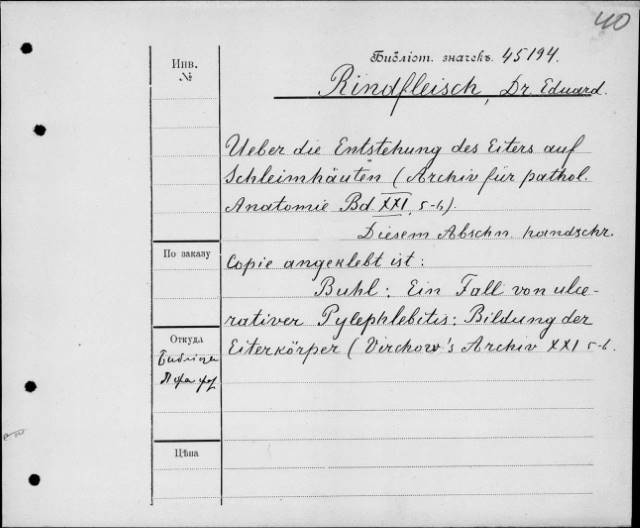 40
Инв.
№
Библіот. значекъ. 45194.
Rindfleisch, Dr. Eduard.
Ueber die Entstehung des Eiters auf
Schleimhäuten (Archiv für pathol.
Anatomie Bd XXI, 5-6).
Diesem Abschn. handschr.
По заказу
Copie angeklebt ist:
Buhl: Ein Fall von ulce-
rativer Pylephlebitis: Bildung der
Откуда
Eiterkörper (Virchow's Archiv XXI 5-6.
Цѣна